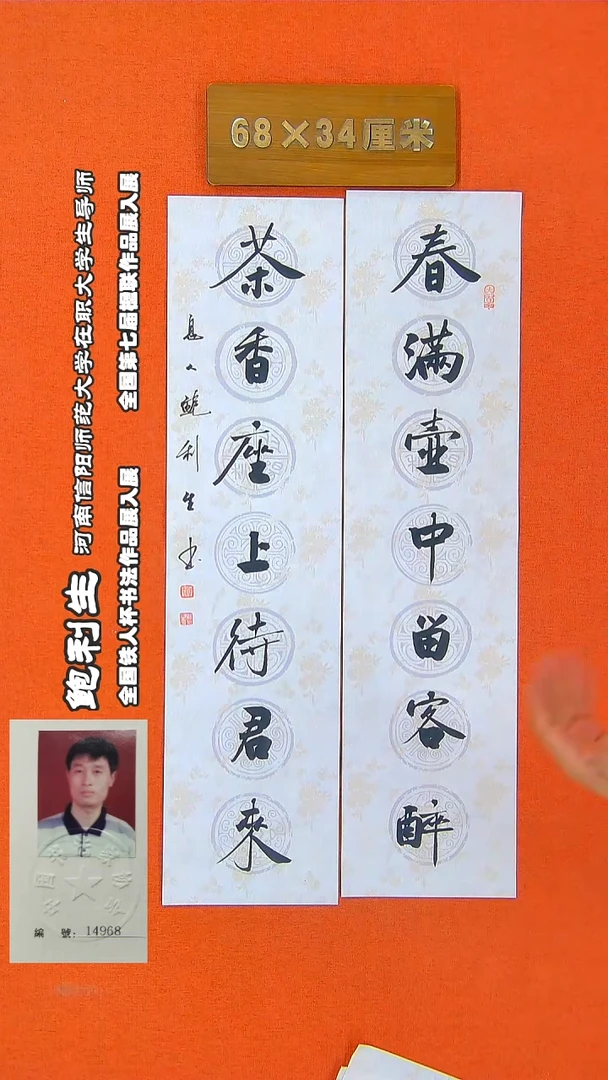 68×34厘米
春满壶中留客醉
茶香座上待君来
息人鲍利生书
鲍利生 河南信阳师范大学在职大学生导师
全国铁人杯书法作品展入展 全国第七届楹联作品展入展
編 號：14968